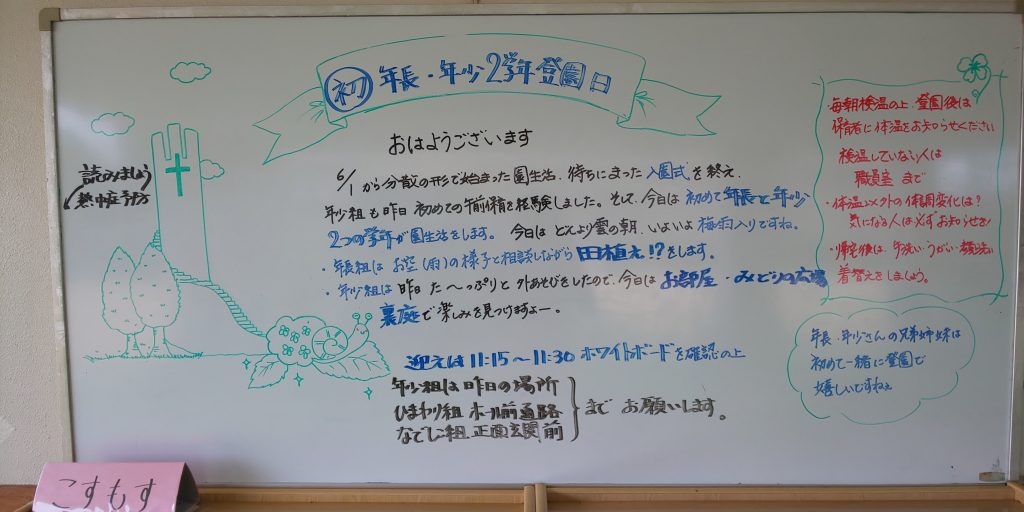 初 年長・年少2学年登園日
おはようございます
6/1から分散の形で始まった園生活、待ちにまった入園式を終え、
年少組も昨日初めての午前保育を経験しました。そして、今日は初めて年長と年少
2つの学年が園生活をします。今日はどんより雲の朝、いよいよ梅雨入りですね。
・年長組はお空(雨)の様子と相談しながら田植え!?をします。
・年少組は昨日た〜っぷりと外あそびをしたので、今日はお部屋・みどりの広場
裏庭で楽しみを見つけますよー。
迎えは11:15〜11:30 ホワイトボードを確認の上
年少組は昨日の場所
ひまわり組 ホール前通路
なでしこ組 正面玄関前
まで お願いします。
読みましょう
熱中症予防
・毎朝検温の上、登園後は
保育者に体温をお知らせください
検温していない人は
職員室まで
・体温以外の体調変化は?
気になる人は必ずお知らせを!
・帰宅後は、手洗い・うがい・顔洗い
着替えをしましょう。
年長・年少さんの兄弟姉妹は
初めて一緒に登園で
嬉しいですねぇ
こすもす